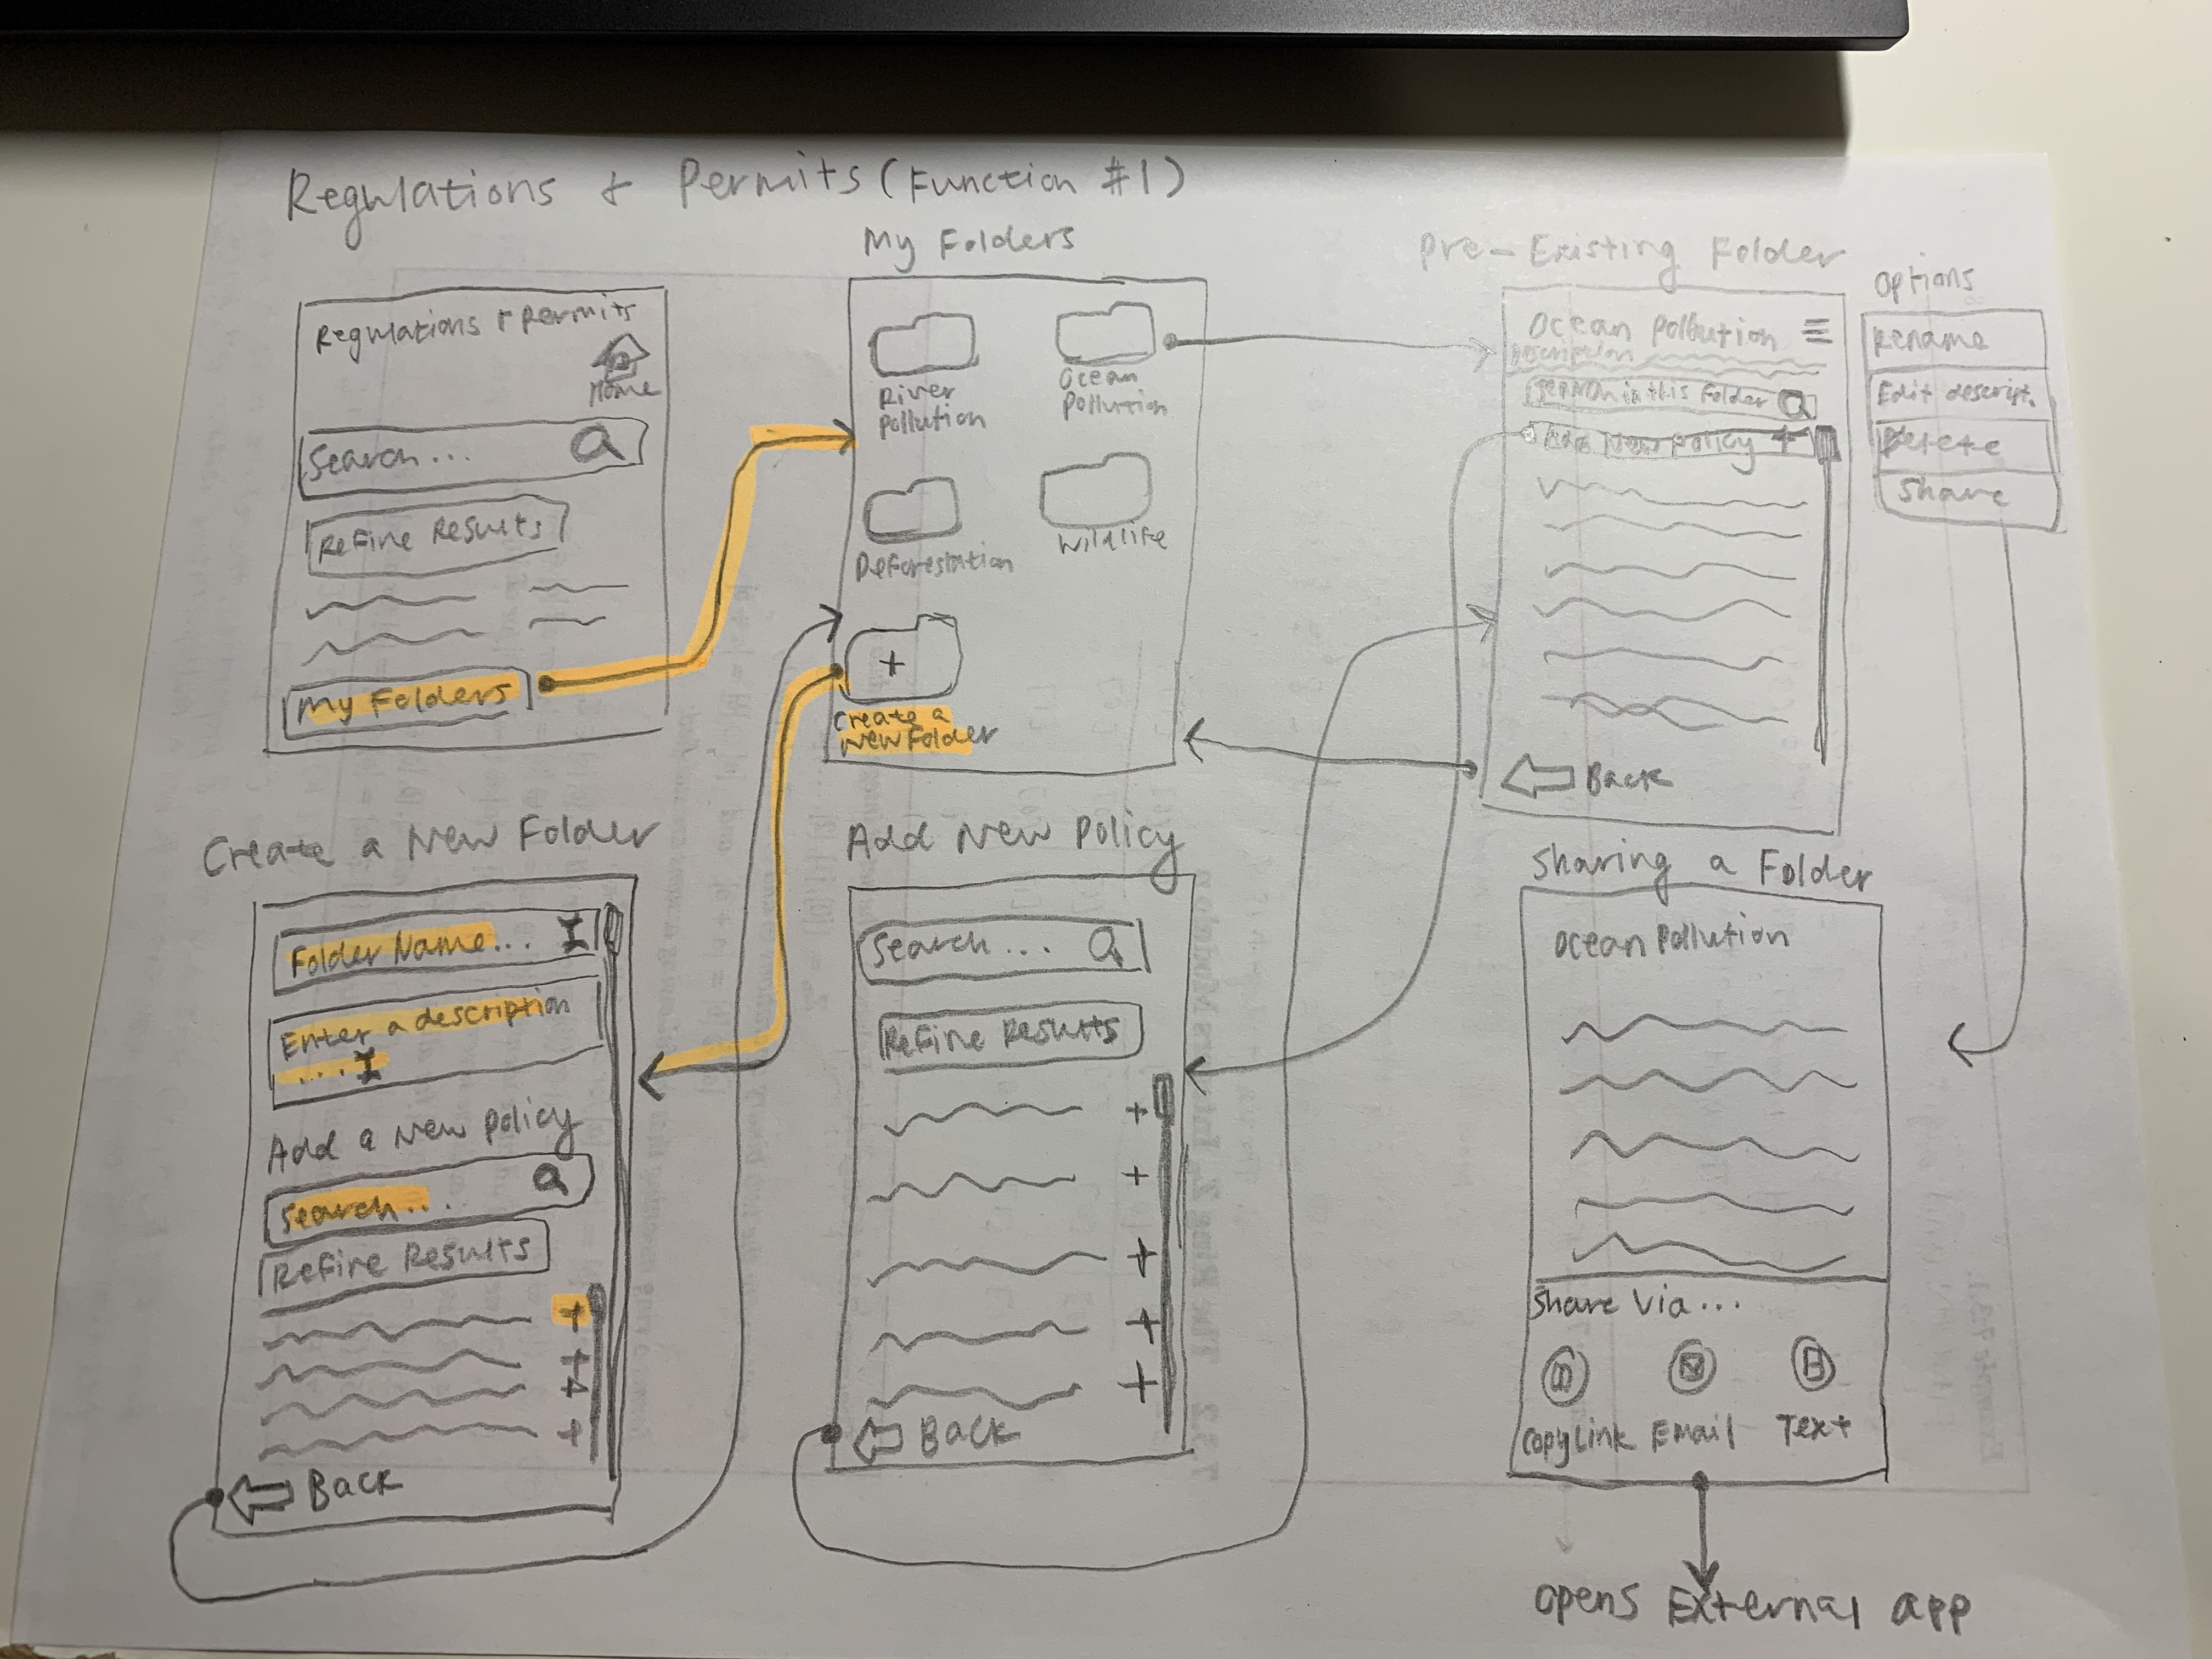 Regulations + Permits (Function #1)
Regulations + Permits
Home
Search...
Refine Results
My Folders
My Folders
River
Pollution
Ocean
Pollution
Deforestation
Wildlife
+
Create a
New Folder
Pre-Existing Folder
Ocean Pollution
Description
Search in this Folder
Add New Policy +
Back
Options
Rename
Edit descript.
Delete
Share
Create a New Folder
Folder Name...
Enter a description
...
Add a New Policy
Search...
Refine Results
+
+
+
+
Back
Add New Policy
Search...
Refine Results
+
+
+
+
+
Back
Sharing a Folder
Ocean Pollution
Share Via...
Copy Link Email Text
Opens External app